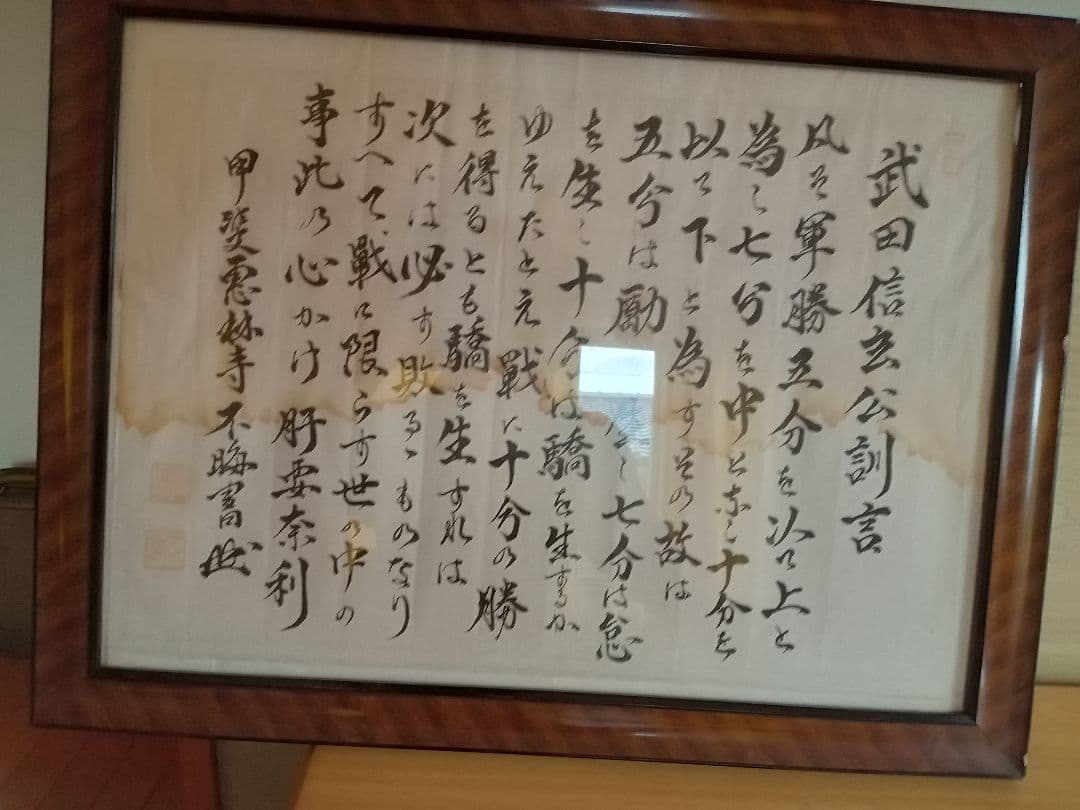 武田信玄公訓言
凡そ軍勝五分を以て上と
為し七分を中と為し十分を
以て下と為すその故は
五分は励を生し七分は怠
を生し十分は驕を生するか
ゆえたとえ戦に十分の勝
を得るとも驕を生すれは
次には必す敗るゝものなり
すへて戦に限らす世の中の
事此の心かけ肝要奈利
甲斐恵林寺不晦書